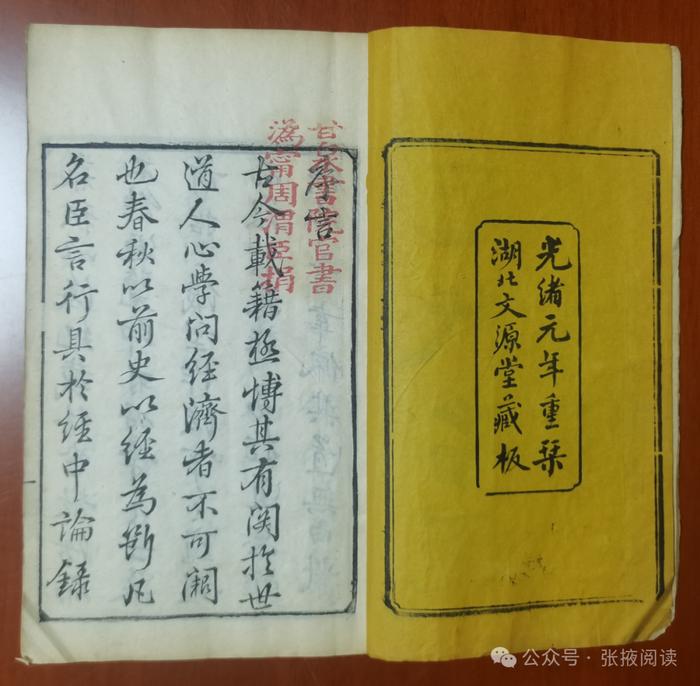 光緒元年重栞
湖北文源堂藏板
甘泉書院官書
溈甯周渭臣捐
言
古今載籍極博其有関於世
道人心學問經濟者不可闕
也春秋以前史以經為斷凡
名臣言行具於經中論錄
公众号 · 张掖阅读